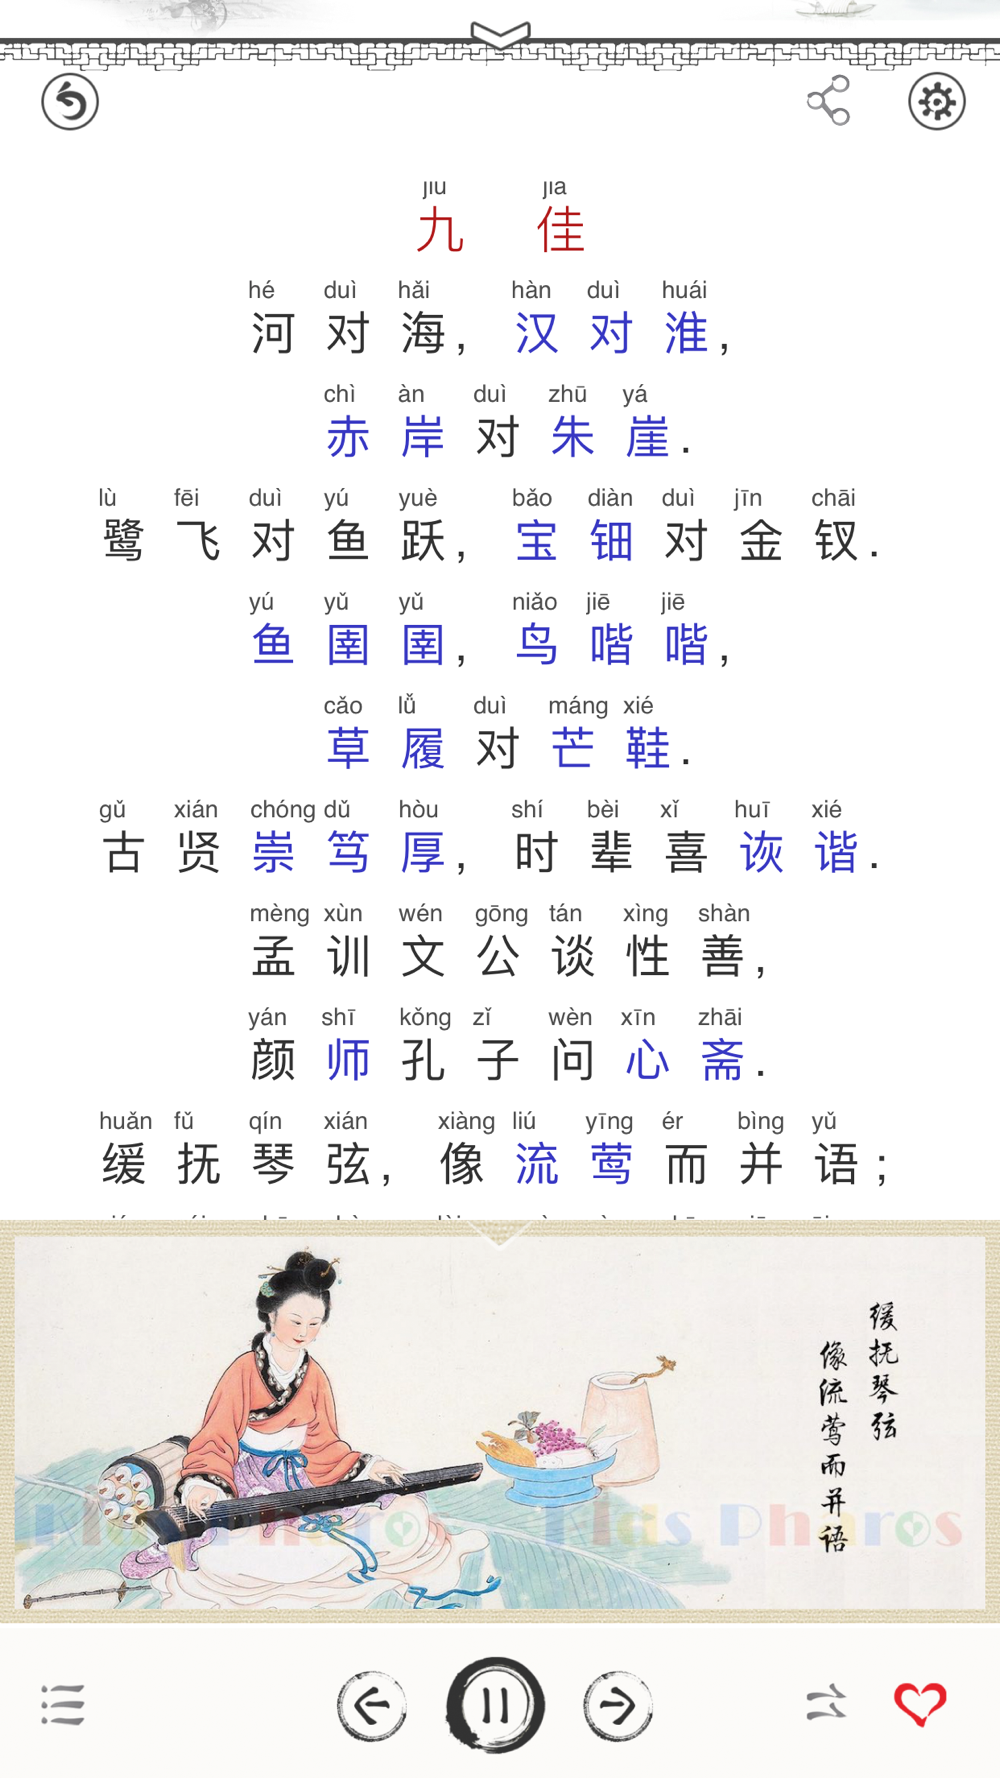 jiu jia
九 佳
hé duì hǎi hàn duì huái
河 对 海, 汉 对 淮,
chì àn duì zhū yá
赤 岸 对 朱 崖.
lù fēi duì yú yuè bǎo diàn duì jīn chāi
鹭 飞 对 鱼 跃, 宝 钿 对 金 钗.
yú yǔ yǔ niǎo jiē jiē
鱼 圉 圉, 鸟 喈 喈,
cǎo lǚ duì máng xié
草 履 对 芒 鞋.
gǔ xián chóng dǔ hòu shí bèi xǐ huī xié
古 贤 崇 笃 厚, 时 辈 喜 诙 谐.
mèng xùn wén gōng tán xìng shàn
孟 训 文 公 谈 性 善,
yán shī kǒng zǐ wèn xīn zhāi
颜 师 孔 子 问 心 斋.
huǎn fǔ qín xián xiàng liú yīng ér bìng yǔ
缓 抚 琴 弦, 像 流 莺 而 并 语;
缓抚琴弦
像流莺而并语
Kids Pharos Kids Pharos